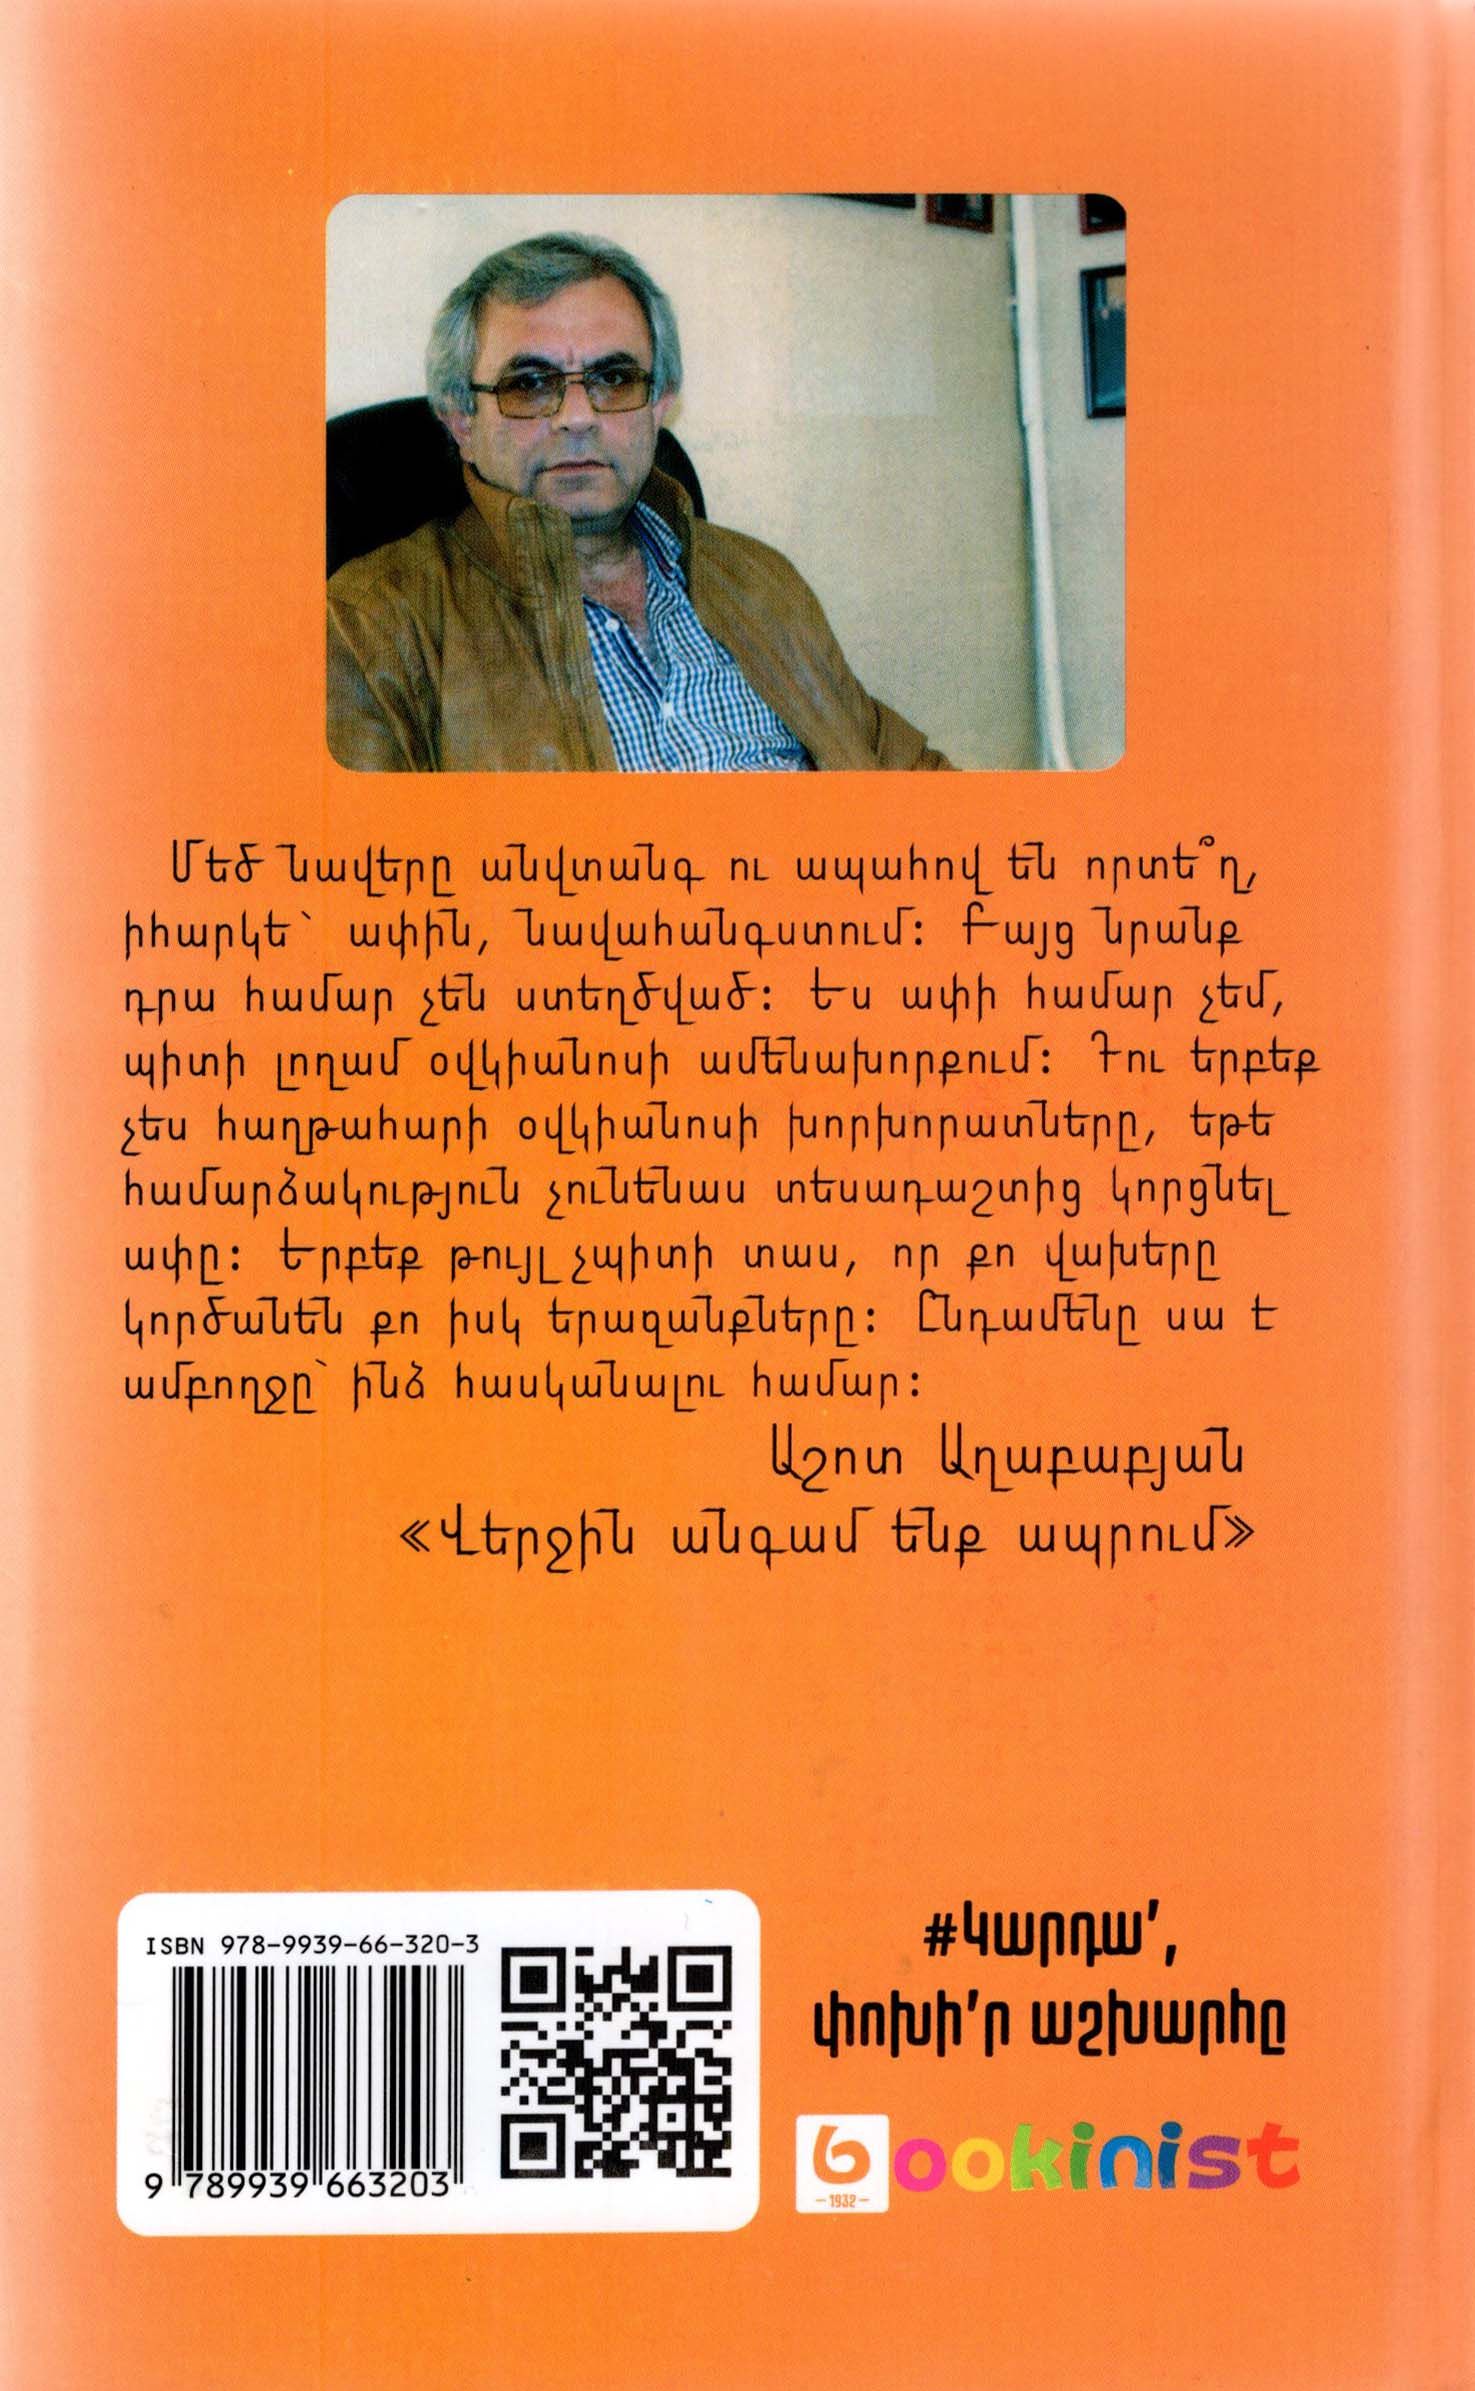 Մեծ նավերը անվտանգ ու ապահով են որտե՞ղ,
իհարկե՝ ափին, նավահանգստում: Բայց նրանք
դրա համար չեն ստեղծված: Ես ափի համար չեմ,
պիտի լողամ օվկիանոսի ամենախորքում: Դու երբեք
չես հաղթահարի օվկիանոսի խորխորատները, եթե
համարձակություն չունենաս տեսադաշտից կորցնել
ափը: Երբեք թույլ չպիտի տաս, որ քո վախերը
կործանեն քո իսկ երազանքները: Ընդամենը սա է
ամբողջը՝ ինձ հասկանալու համար:
Աշոտ Աղաբաբյան
«Վերջին անգամ ենք ապրում»
ISBN 978-9939-66-320-3
9 789939 663203
#Կարդա՛,
փոխի՛ր աշխարհը
bookinist
–1932–